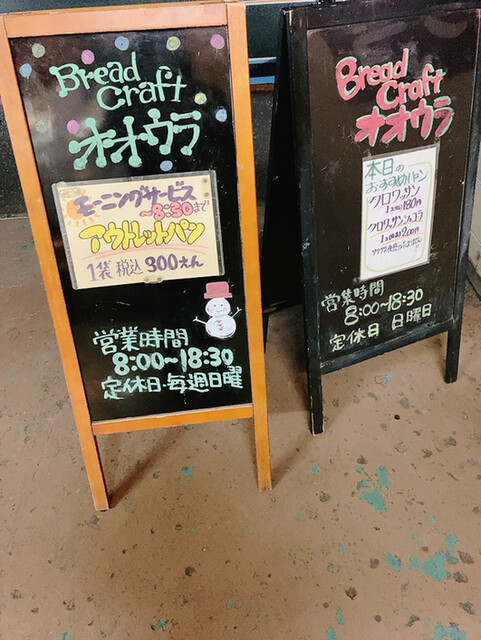 Bread
Craft
オオウラ
モーニングサービス
〜8:50まで
アウトレットパン
1袋 税込 300えん
営業時間
8:00〜18:30
定休日・毎週日曜
Bread
Craft
オオウラ
本日の
おすすめパン
クロワッサン
180円
クロワッサンショコラ
200円
営業時間
8:00〜18:30
定休日 日曜日